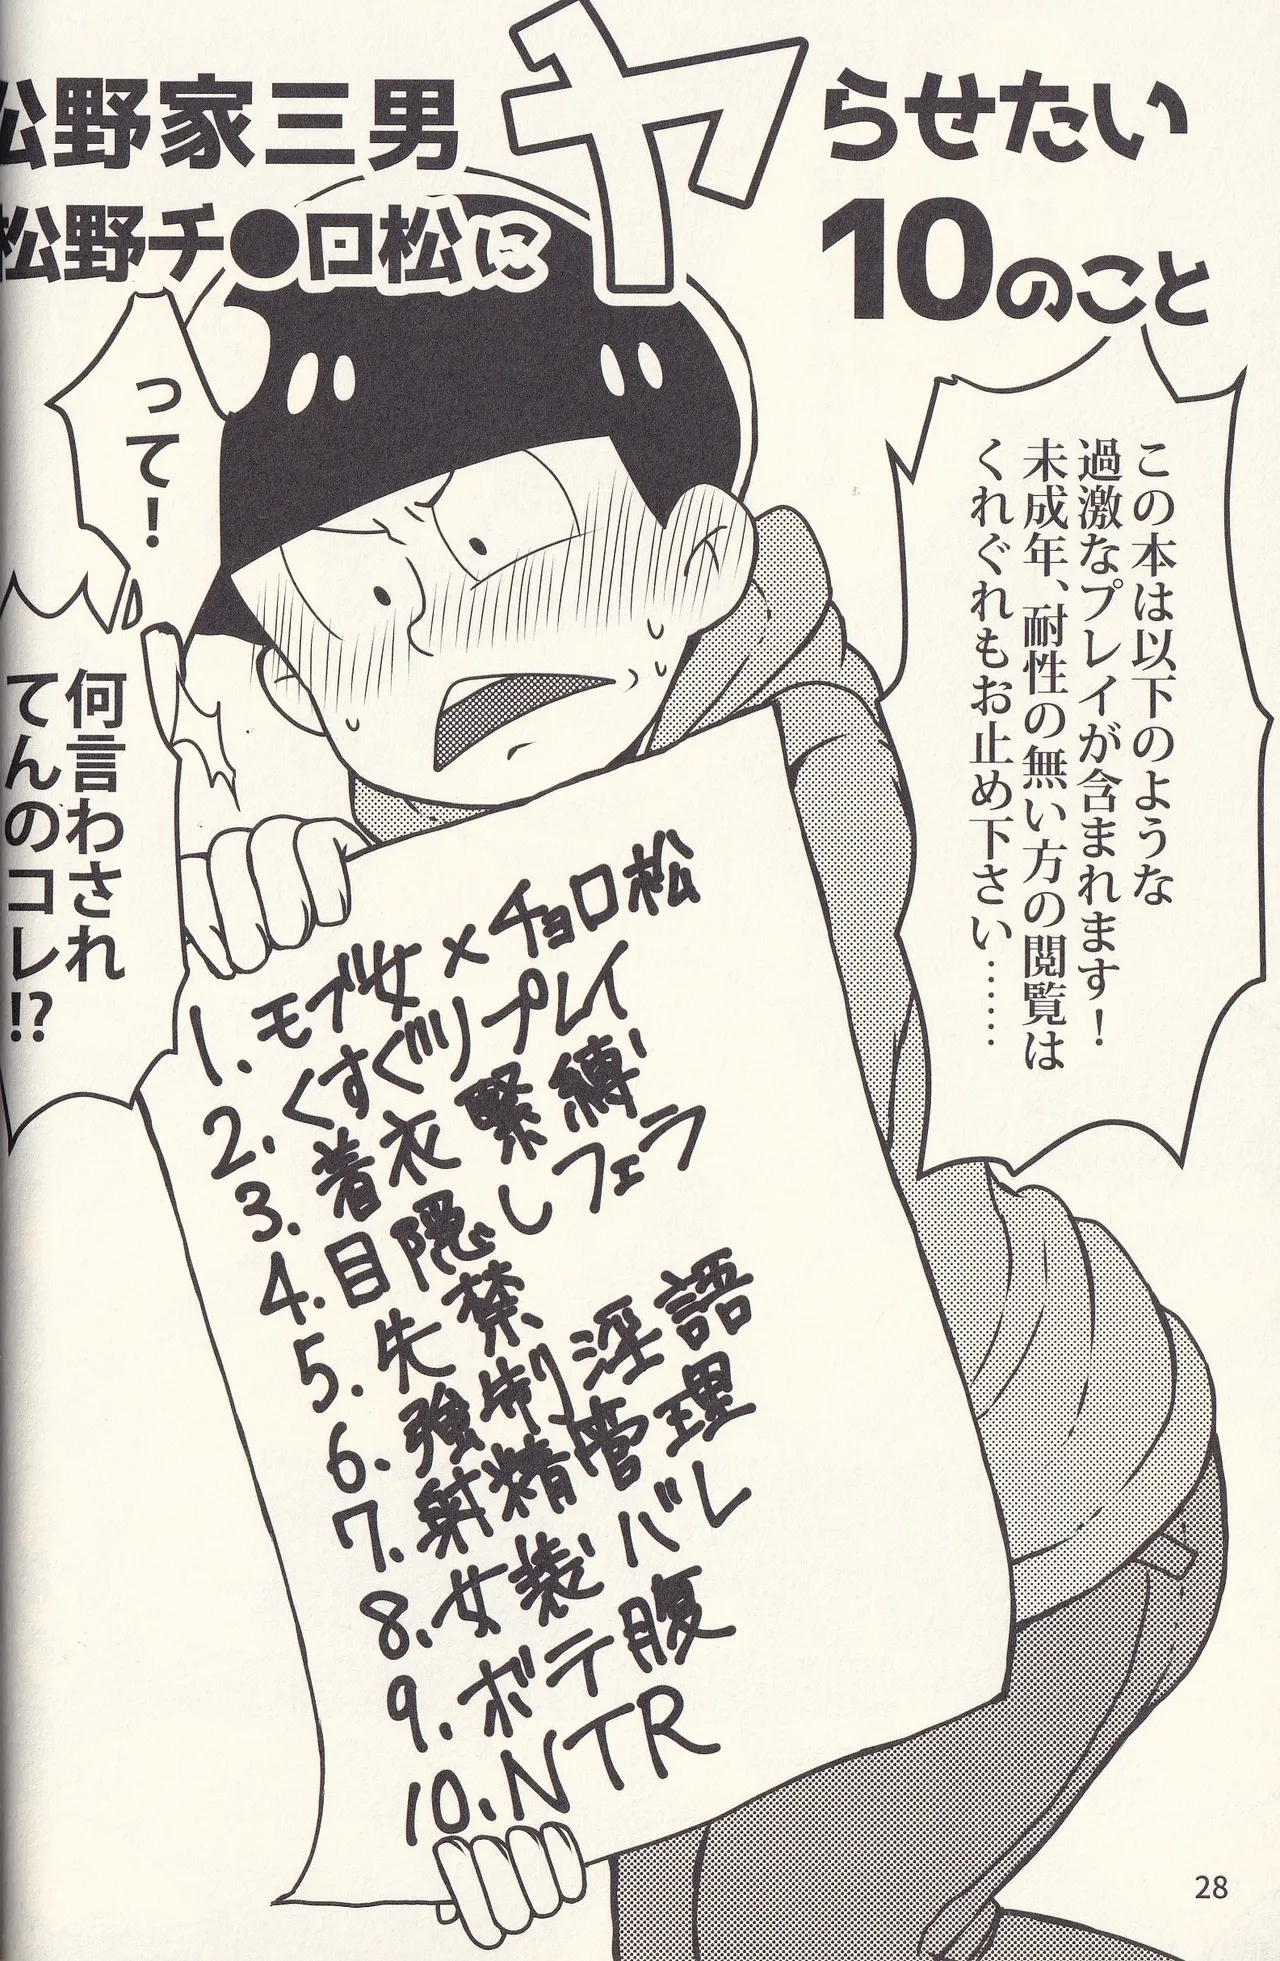 松野家三男
松野チ●ロ松に
ヤらせたい
10のこと
この本は以下のような
過激なプレイが含まれます！
未成年、耐性の無い方の閲覧は
くれぐれもお止め下さい……
って！
何言わされ
てんのコレ!?
1.モブ女×チョロ松
2.くすぐりプレイ
3.着衣緊縛
4.目隠しフェラ
5.失禁
6.強制淫語
7.射精管理
8.女装バレ
9.ボテ腹
10.NTR
28